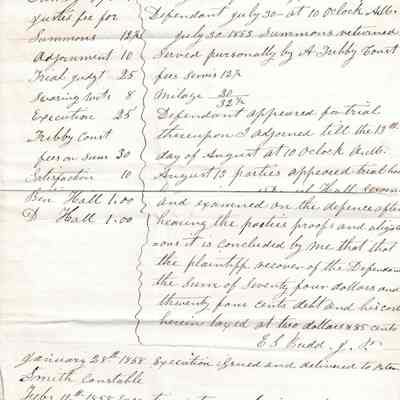 Justice fee for
Summons 12½
Adjournment 10
Trial judgt 25
Swaring wits 8
Execution 25
Tribby Court
fees on sum 30
Satisfaction 10
Ben Hall 1.00
D Hall 1.00
Defendant july 30 at 10 Oclock AM
july 30 1853 Summons returned
Served personally by A Tribby Court
fees servis 12½
Milage 20
32½
Defendant appeared for trial
thereupon I adjorned till the 13th
day of August at 10 Oclock AM.
August 13 parties appeared trial had
Hall sworn
and examined on the defence after
hearing the parties proofs and allega
tions it is concluded by me that that
the plaintiff recover of the Defendan
the sum of Seventy four dollars and
thwenty four cents debt and his cost
herein taxed at two dollars 85 cents
E S Budd J. P.
January 28th 1858 Execution issued and delivered to
Smith Constable
Febr 11th 1858